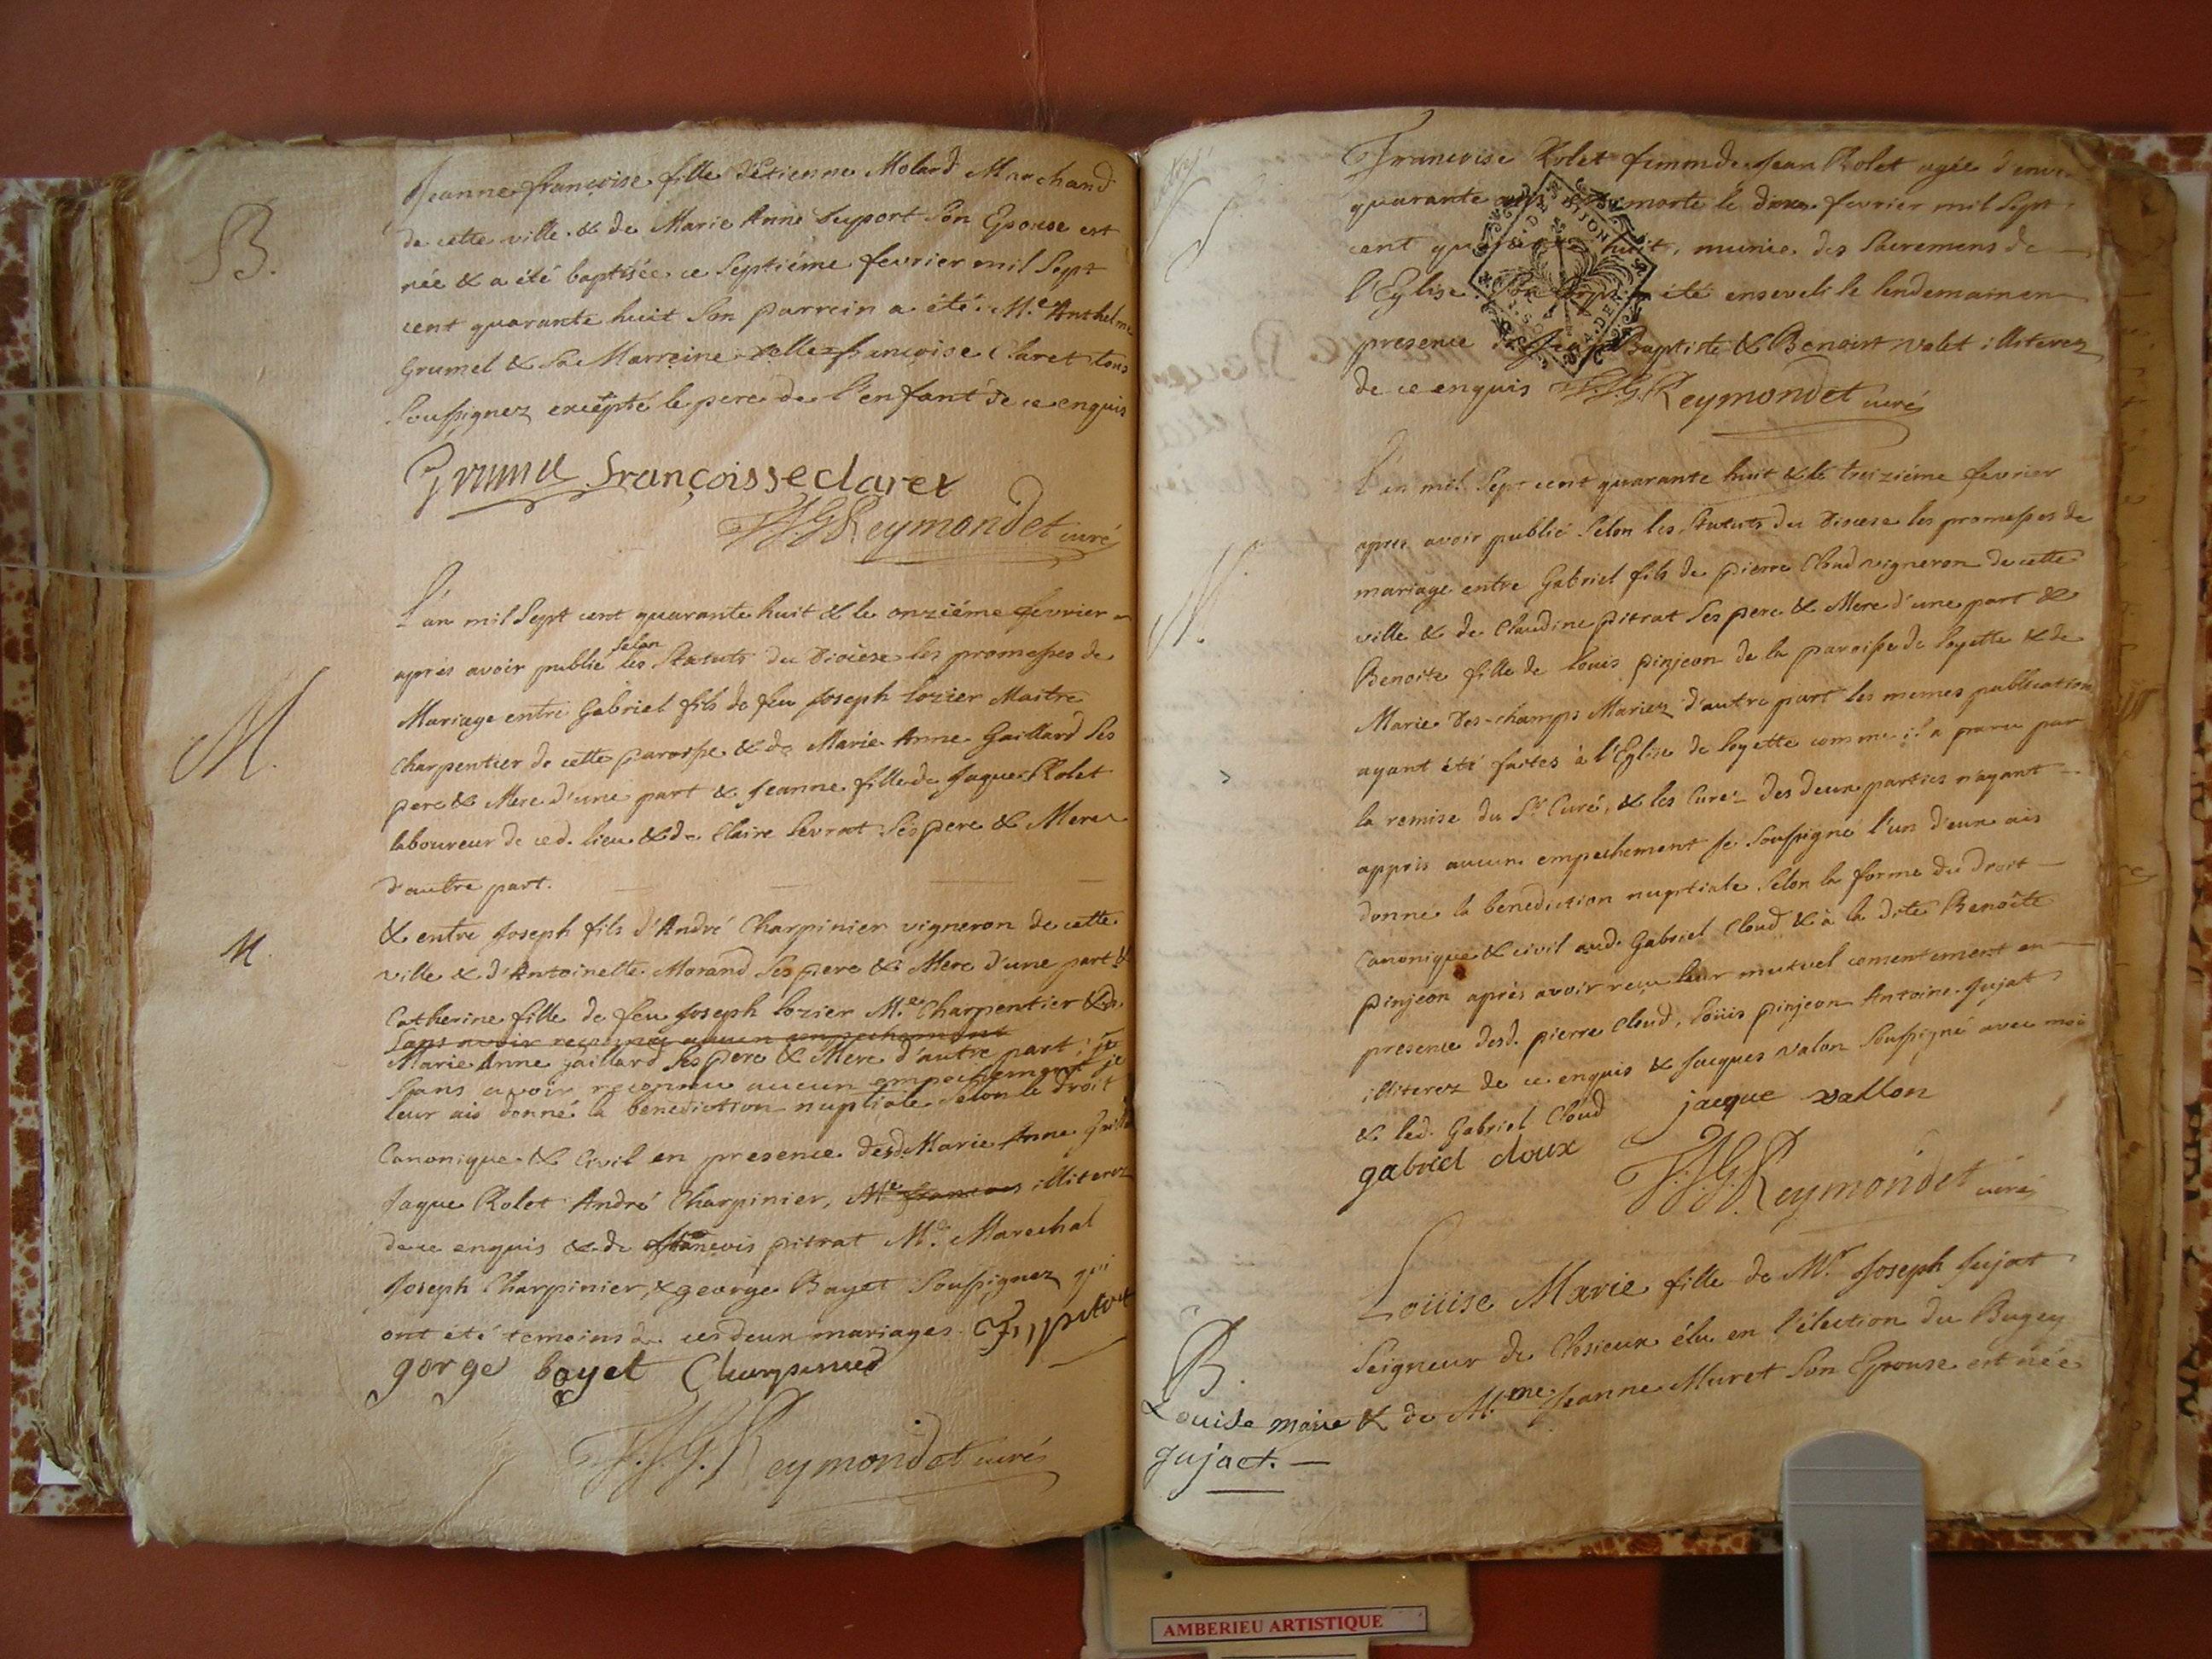 B.
Jeanne françoise fille d'Etienne Molard Marchand
de cette ville & de Marie Anne Suyport Son Epouse est
née & a été baptisée ce Septiéme fevrier mil Sept
cent quarante huit Son parrein a été Me. Anthelme
Grumel & Sa Marreine françoise Claret tous
Soussignez excepté le pere de l'enfant de ce enquis
Grumel françoisse claret
F.J.G. Reymondet curé
M.
L'an mil Sept cent quarante huit & le onziéme fevrier
aprés avoir publié selon les Statuts du Diocèse les promesses de
Mariage entre Gabriel fils de feu Joseph lozier Maitre
Charpentier de cette paroisse & de Marie Anne Gaillard Ses
pere & Mere d'une part & Jeanne fille de Jaque Rolet
laboureur de ced. lieu & de Claire Sevrat Ses pere & Mere
d'autre part.
M.
& entre Joseph fils d'André Charpinier vigneron de cette
ville & d'Antoinette Morand Ses pere & Mere d'une part &
Catherine fille de feu Joseph lozier Me. Charpentier & de
Sans avoir reconnu aucun empechement
Marie Anne gaillard Ses pere & Mere d'autre part, je
Sans avoir reconnu aucun empechement je
leur ais donné la benediction nuptiale Selon le droit
Canonique & Civil en presence desd. Marie Anne
Jaque Rolet André Charpinier, Me. francois illiterez
de ce enquis & de francois pitrat Me. Marechal
Joseph Charpinier, & george Bayet Soussignez qui
ont été temoins de ces deux mariages. F. pitrat
gorge bayet Charpinied
F.J.G. Reymondet curé
Francoise Rolet femme de Jean Rolet agée d'environ
quarante ans morte le fevrier mil Sept
cent quarante huit, munie des Sacremens de
l'Eglise. Son corps a été enseveli le lendemain en
presence de Jean Baptiste & Benoit valet illiterez
de ce enquis F.J.G. Reymondet curé
DE DIJON
M.
L'an mil Sept cent quarante huit & le treiziéme fevrier
apres avoir publié Selon les Statuts du Diocese les promesses de
mariage entre Gabriel fils de pierre Cloud vigneron de cette
ville & de Claudine pitrat Ses pere & Mere d'une part &
Benoite fille de louis pinjeon de la paroisse de loyette & de
Marie Des-champs Mariez d'autre part les memes publications
ayant été faites à l'Eglise de loyette comme il a paru par
la remise du Sr. Curé, & les Curez des deux parties n'ayant
appris aucun empechement je Soussigné l'un d'eux ais
donné la benediction nuptiale Selon la forme du droit
Canonique & civil aud. Gabriel Cloud & à la dite Benoîte
pinjeon aprés avoir recu leur mutuel consentement en
presence desd. pierre Cloud, loüis pinjeon Antoine Jujat
illiterez de ce enquis & Jacques valon Soussigné avec moi
& led. Gabriel Cloud jacque vallon
gabriel cloux
F.J.G. Reymondet curé
B.
Louise marie
Jujact.
Loüise Marie fille de Mr. Joseph Jujat
Seigneur de Chosieux élu en l'élection du Bugey
& de Mme. Jeanne Muret Son Epouse est née
AMBERIEU ARTISTIQUE